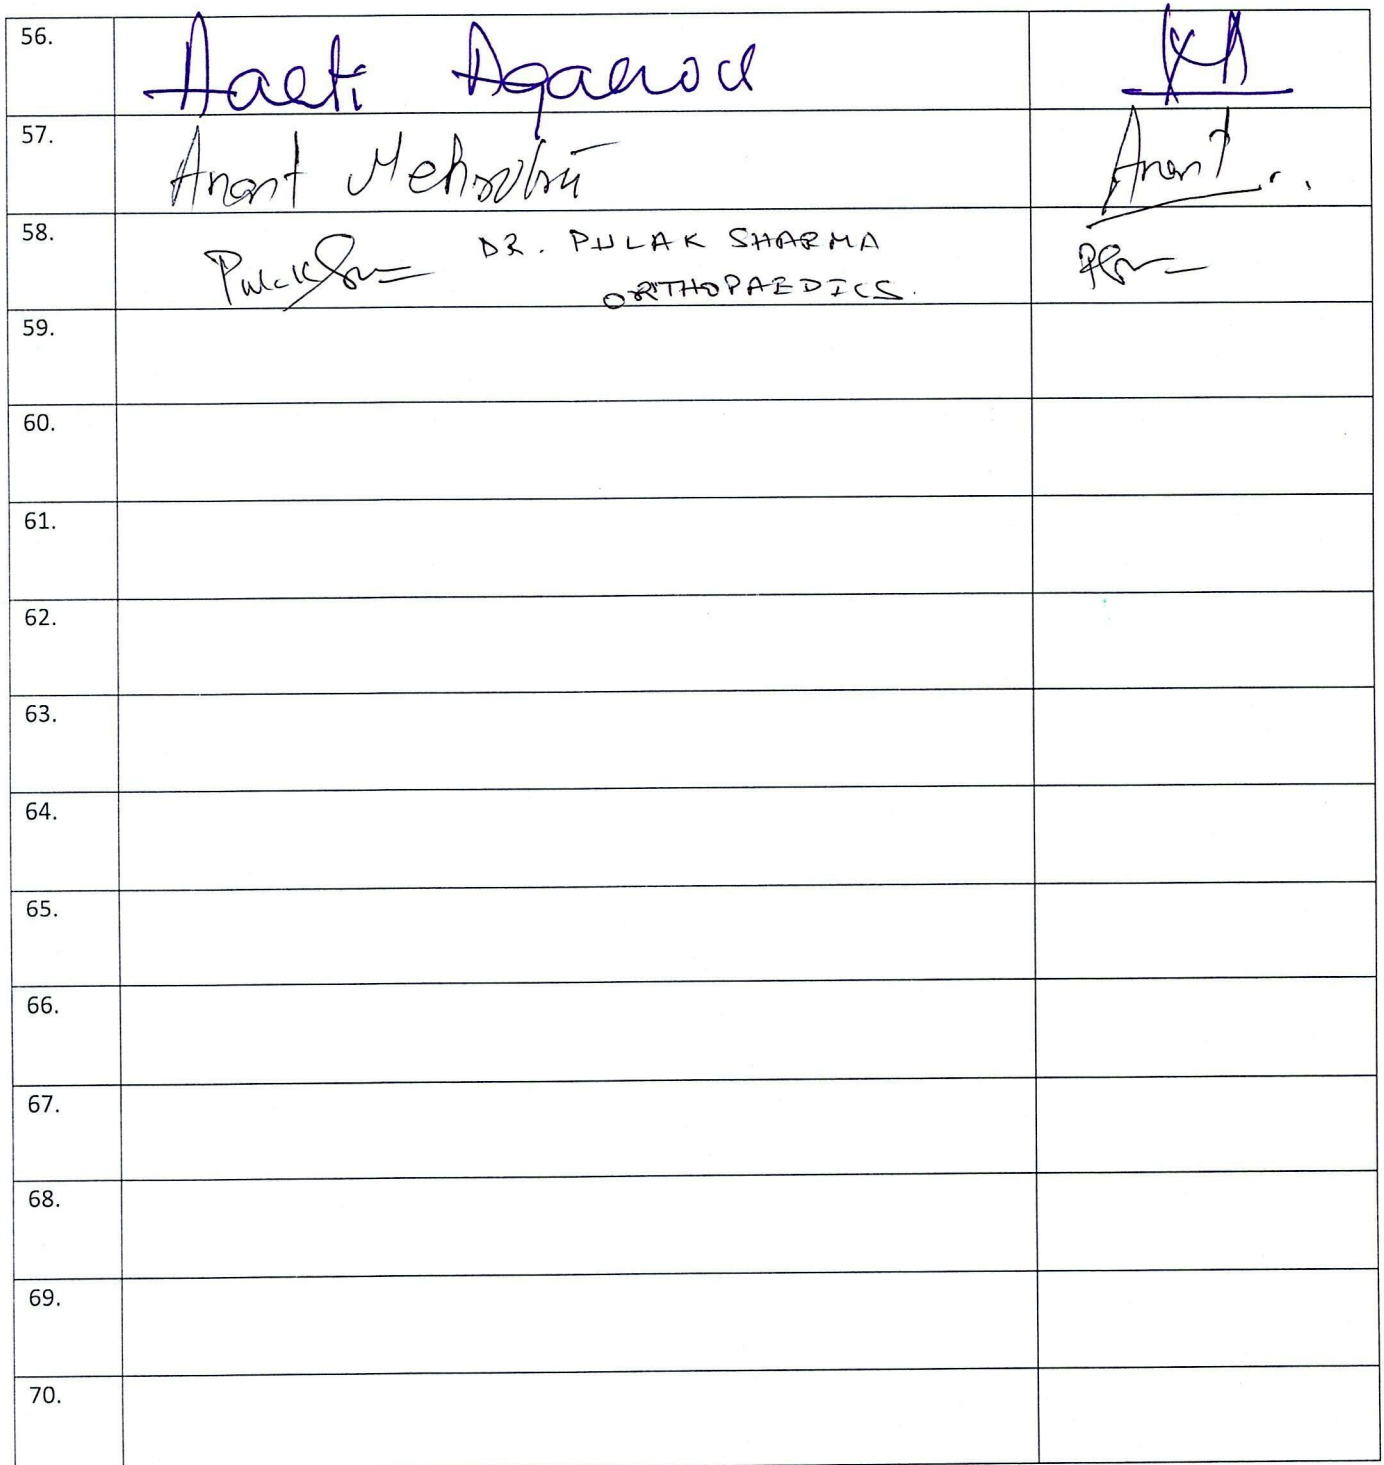 56. Aarti Agarwal
57. Anant Mehrotra Anant
58. Pulak DR. PULAK SHARMA
ORTHOPAEDICS.
59.
60.
61.
62.
63.
64.
65.
66.
67.
68.
69.
70.